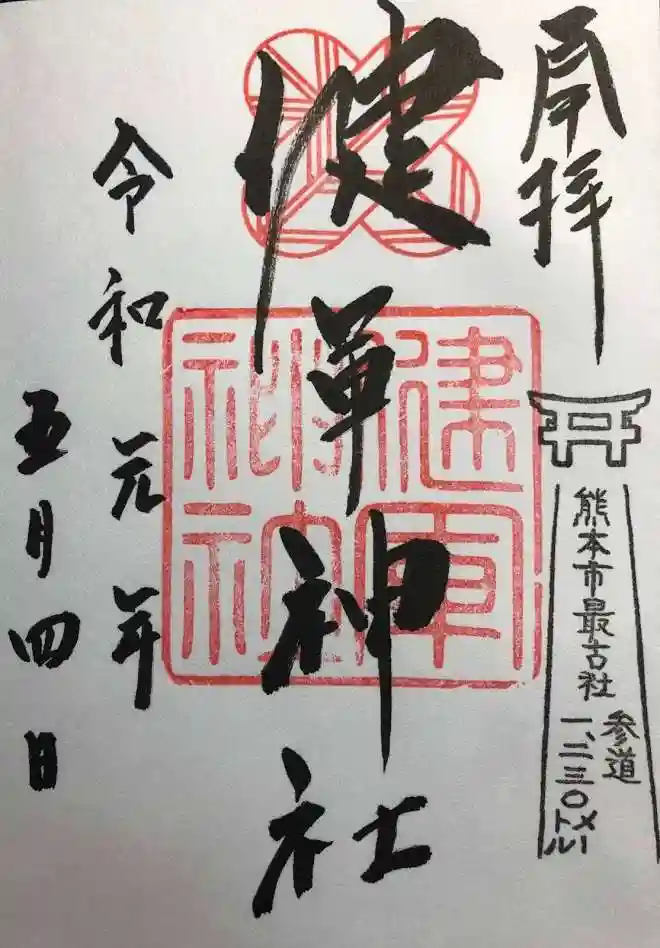 奉拝
健軍神社
令和元年
五月四日
熊本市最古社
参道
一、二三〇メートル